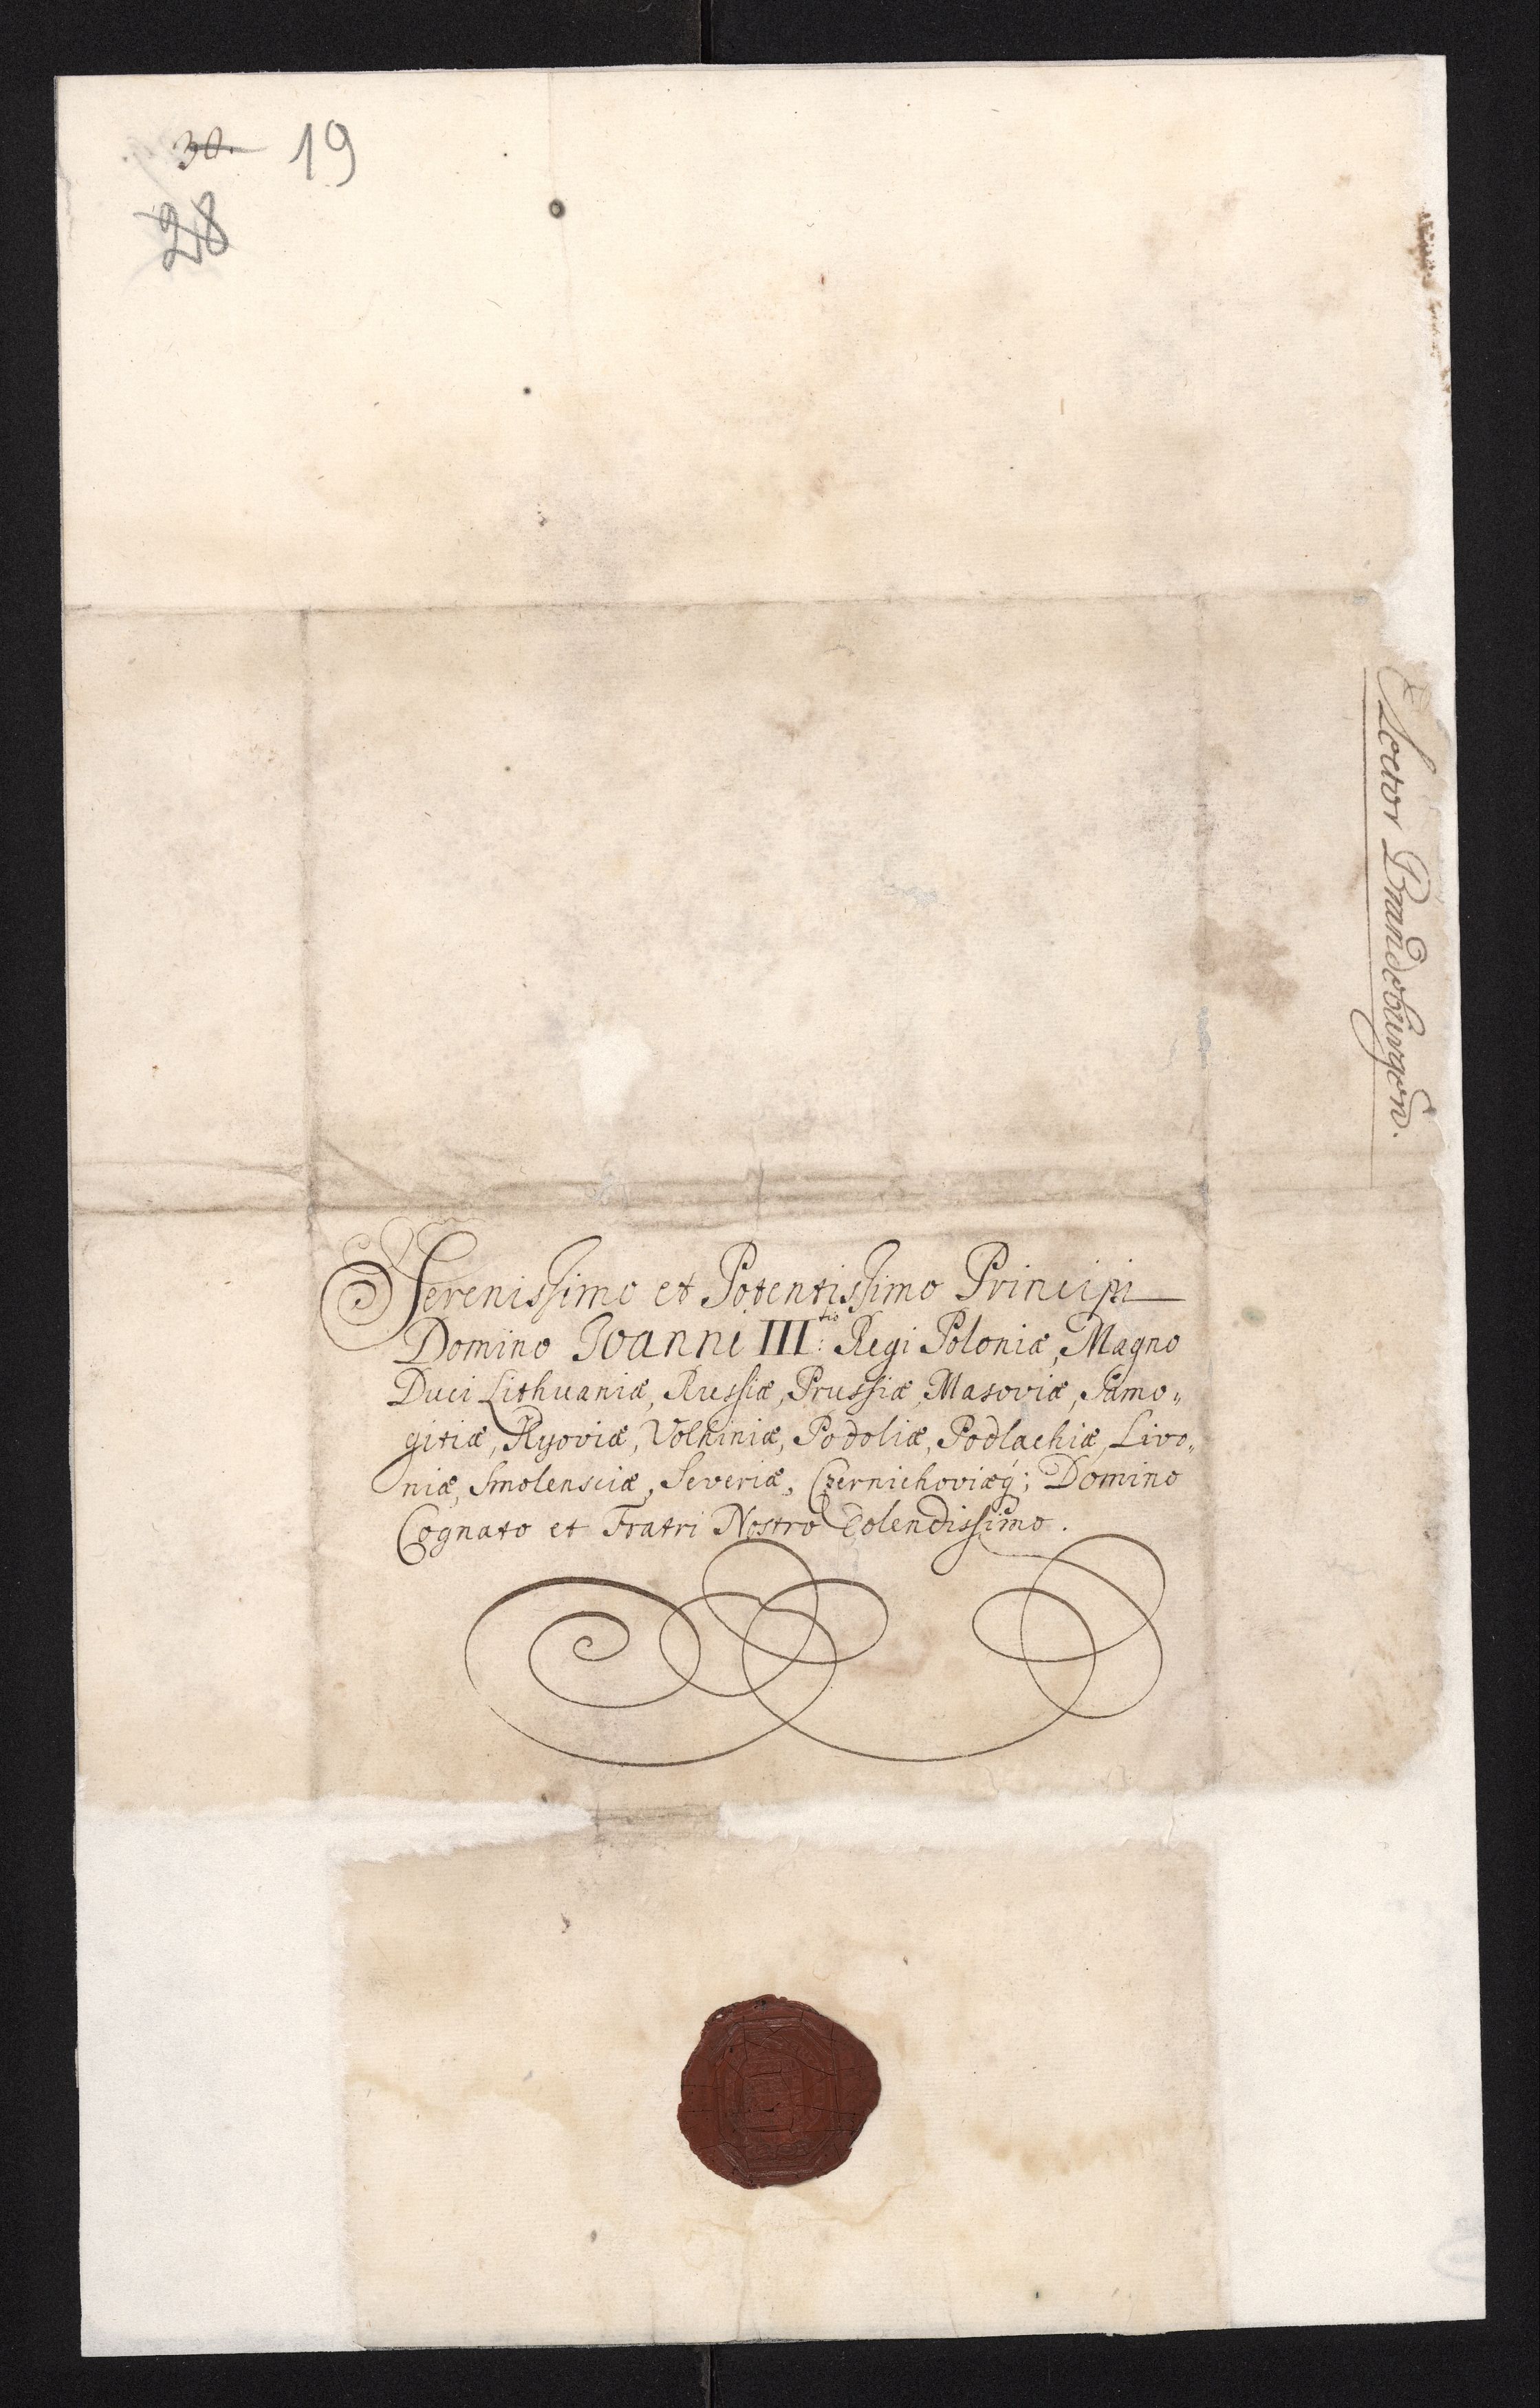 30. 19
28
Elector Brandeburgen.
Serenissimo et Potentissimo Principi
Domino Joanni III.tio Regi Poloniæ, Magno
Duci Lithuaniæ, Russiæ, Prussiæ, Masoviæ, Samo„
gitiæ, Kyoviæ, Volhiniæ, Podoliæ, Podlachiæ, Livo„
niæ, Smolensciæ, Severiæ, Czernichoviæq́; Domino
Cognato et Fratri Nostro Colendissimo.